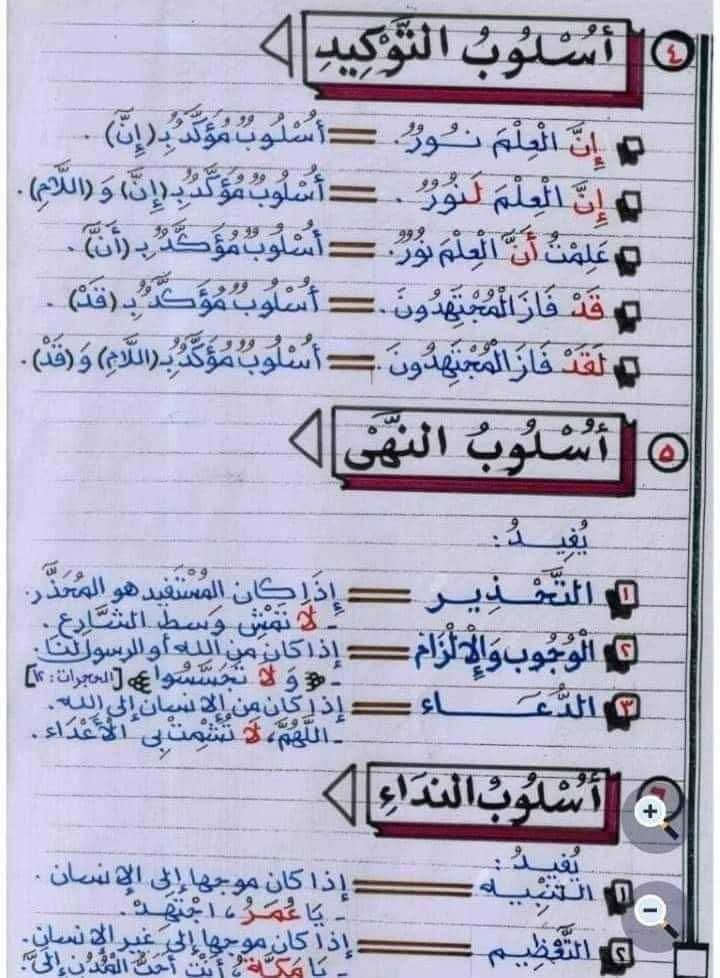 ٤ أُسْلُوبُ التَّوْكِيدِ
إِنَّ الْعِلْمَ نُورٌ. = أُسْلُوبٌ مُؤَكَّدٌ بِـ(إِنَّ).
إِنَّ الْعِلْمَ لَنُورٌ. = أُسْلُوبٌ مُؤَكَّدٌ بِـ(إِنَّ) وَ (اللَّامِ).
عَلِمْتُ أَنَّ الْعِلْمَ نُورٌ. = أُسْلُوبٌ مُؤَكَّدٌ بِـ (أَنَّ).
قَدْ فَازَ الْمُجْتَهِدُونَ. = أُسْلُوبٌ مُؤَكَّدٌ بِـ (قَدْ).
لَقَدْ فَازَ الْمُجْتَهِدُونَ. = أُسْلُوبٌ مُؤَكَّدٌ بِـ(اللَّامِ) وَ (قَدْ).
٥ أُسْلُوبُ النَّهْى
يُفِيدُ:
١ التَّحْذِير = إِذَا كان المُسْتَفِيد هو المُحَذَّر.
- لَا تَمْشِ وَسط الشَّارِعِ.
٢ الْوُجُوب وَالْإِلْزَام = إذا كان من الله أو الرسول لنا.
- ﴿وَ لَا تَجَسَّسُوا﴾ [الحجرات: ١٢]
٣ الدُّعَاء = إذا كان من الإنسان إلى الله.
- اللَّهُمَّ، لَا تُشْمِتْ بِى الْأَعْدَاء.
٦ أُسْلُوبُ النداءِ
يُفيدُ:
١ التنبيه = إذا كان موجها إلى الإنسان.
- يَا عُمَرُ، اجْتَهِدْ.
٢ التَّعْظِيم = إذا كان موجها إلى غير الإنسان.
- يَا مَكَّةُ، أَنْتِ أَحَبُّ الْمُدُنِ إِلَىَّ.